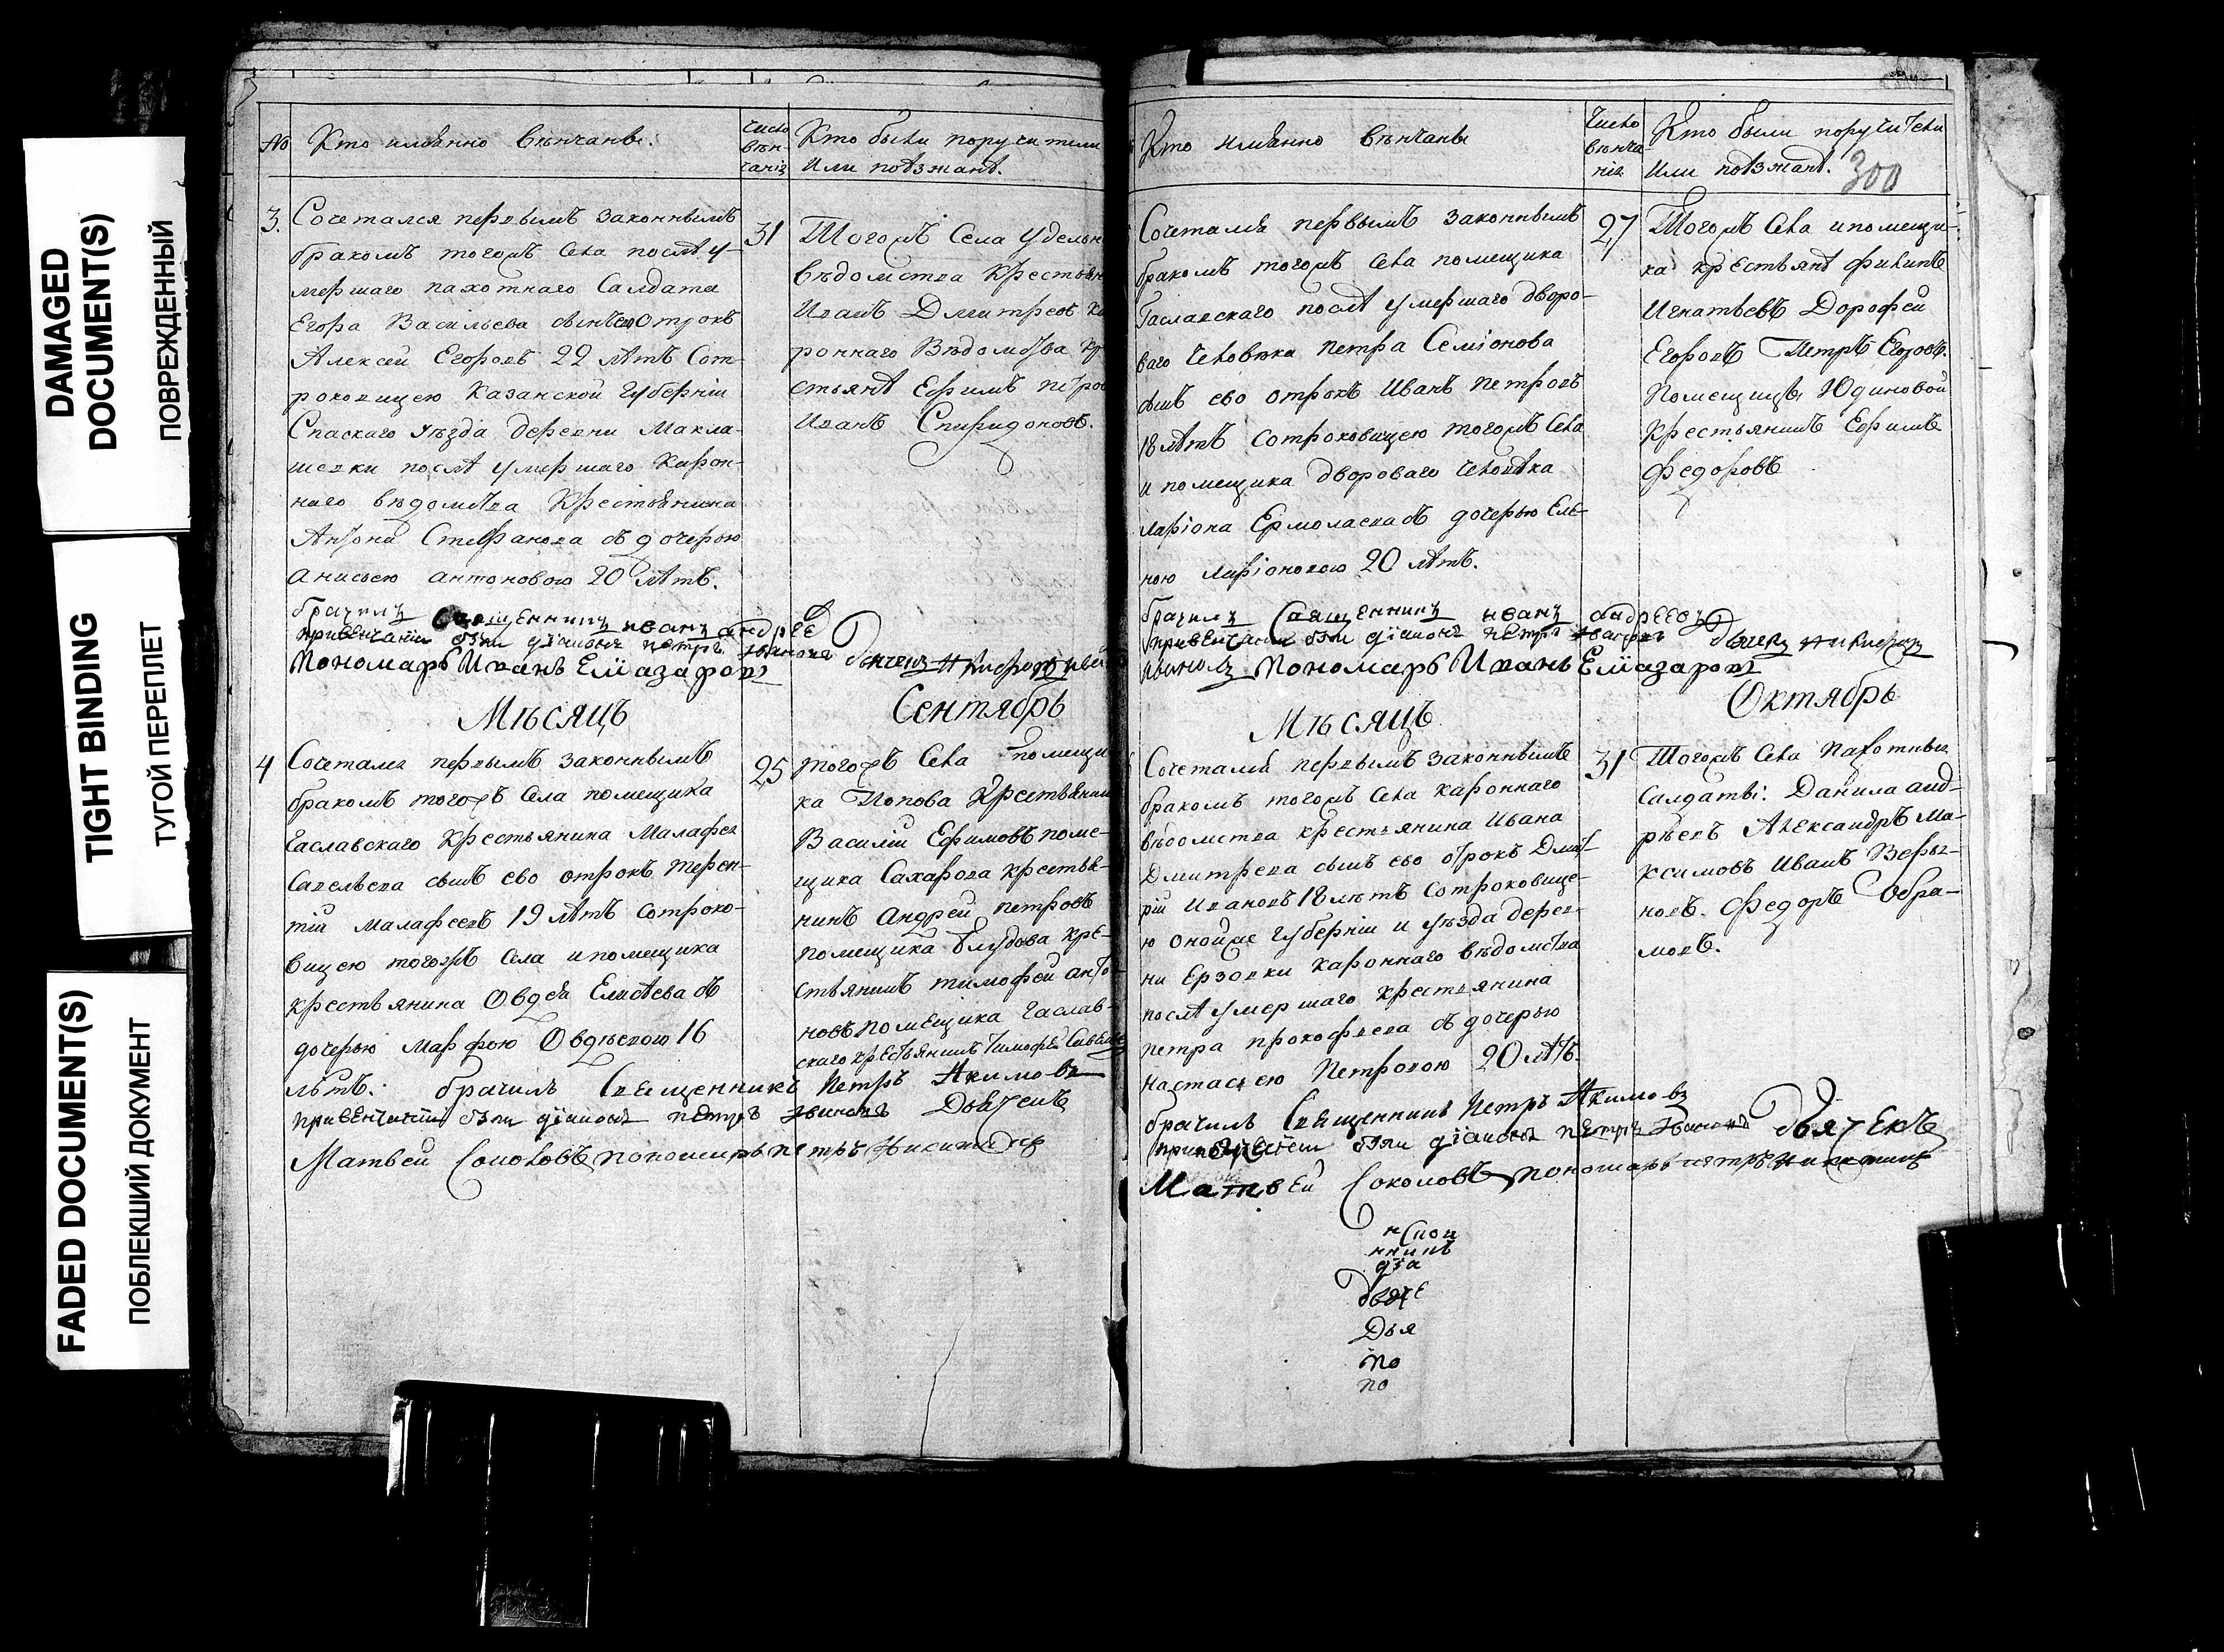 DAMAGED
DOCUMENT(S)
ПОВРЕЖДЕННЫЙ
TIGHT BINDING
ТУГОЙ ПЕРЕПЛЕТ
FADED DOCUMENT(S)
ПОБЛЕКШИЙ ДОКУМЕНТ
№
Кто имѣнно вѣнчаны.
Число
вѣн-
чанія
Кто были поручители
или поѣзжанѣ.
3.
Сочетался первымъ законнымъ
бракомъ тогожъ села послѣ у-
мершаго пахотнаго Салдата
Егора Васильева сынъ его отрокъ
Алексей Егоровъ 22 лѣтъ Сот-
роковицею Казанской Губерніи
Спаскаго уѣзда деревни Макла-
шевки послѣ умершаго Карон-
наго вѣдомства Крестьянина
Антона Стефанова съ дочерью
Анисьею антоновою 20 лѣтъ.
31
Тогожъ Села удельн
вѣдомства Крестьян
Иванъ Дмитреевъ Ка
роннаго Вѣдомства кр
стьянѣ Ефимъ петров
Иванъ Спиридоновъ.
брачилъ Священникъ иванъ андрее
привенчаніи были діаконъ петръ ивановъ Дьячекъ
Пономарь Иванъ Елиазаровъ
Мѣсяцъ
Сентябрь
4
Сочетался первымъ законнымъ
бракомъ тогожъ Села помещика
Гаславскаго Крестьянина Малафея
Савельева сынъ ево отрокъ терен-
тій Малафеевъ 19 лѣтъ сотроко-
вицею тогожъ Села и помещика
крестьянина Овдея Елисѣева съ
дочерью Марфою Овдѣевою 16
лѣтъ.
25
тогожъ Села помещи
ка Попова Крестьянин
Василій Ефимовъ поме-
щика Сахарова крестья-
нинъ Андрей петровъ
помещика Блудова кре-
стьянинъ тимофей анто-
новъ помещика Гаслав-
скаго крестьянинъ Тимофей Савелье
брачилъ Священникъ Петръ Акимовъ
привенчаніи были діаконъ петръ ивановъ Дьячекъ
Матвей Соколовъ пономарь петръ Никитинъ
Кто имѣнно вѣнчаны
Число
вѣнча-
нія
Кто были поручители
или поѣзжанѣ.
300
Сочетался первымъ законнымъ
бракомъ тогожъ Села помещика
Гаславскаго послѣ умершаго дворо-
ваго человека Петра Семіонова
сынъ ево отрокъ Иванъ Петровъ
18 лѣтъ сотроковицею тогожъ Села
и помещика двороваго человѣка
Ларіона Ермолаева съ дочерью Еле-
ною Ларіоновою 20 лѣтъ.
27
Тогожъ Села и помещи-
ка крестьянѣ филипъ
Игнатьевъ Дорофей
Егоровъ Петръ Егоровъ.
Помещицы Юдиновой
Крестьянинъ Ефимъ
Федоровъ
брачилъ Священникъ иванъ андреевъ
привенчаніи были діаконъ петръ ивановъ Дьячекъ никифоръ
ивановъ Пономарь Иванъ Елиазаровъ
Мѣсяцъ
Октябрь
Сочетался первымъ законнымъ
бракомъ тогожъ Села кароннаго
вѣдомства крестьянина Ивана
Дмитрева сынъ ево отрокъ Дмит-
рій Ивановъ 18 лѣтъ Сотроковице-
ю оной же Губерніи и уѣзда дерев-
ни Ерзовки кароннаго вѣдомства
послѣ умершаго крестьянина
петра прокофьева съ дочерью
Настасьею Петровою 20 лѣтъ.
31
Тогожъ Села Пахотныя
Салдаты: Данила анд-
рѣевъ Александръ Ма-
ксимовъ Иванъ
Федоръ
брачилъ Священникъ Петръ Акимовъ
были діаконъ петръ ивановъ Дьячекъ
Матвей Соколовъ пономарь петръ никитинъ
дїа
Дья
по
по